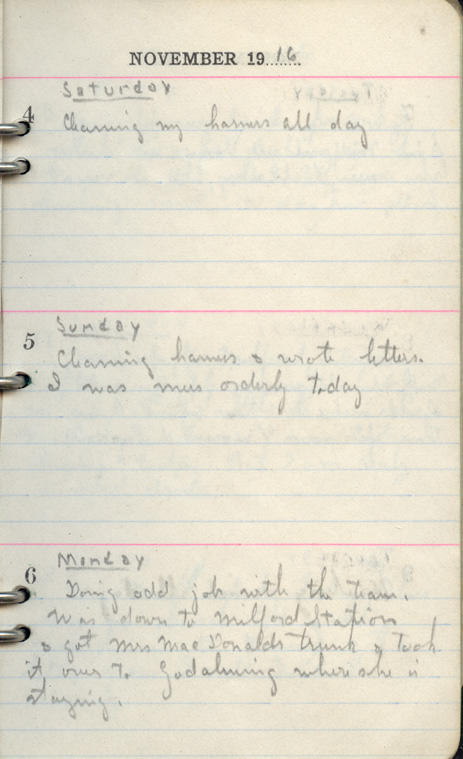 NOVEMBER 1916
Saturday
4
Cleaning my harness all day
5
Sunday
Cleaning harness & wrote letters.
I was mess orderly today
6
Monday
Doing odd job with the team.
Was down to Milford Station
& got Mrs MacDonalds trunk & took
it over to Godalming where she is
staying.